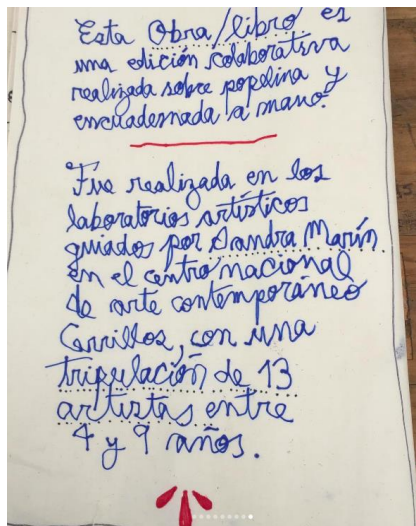 Esta Obra/libro es
una edición colaborativa
realizada sobre popelina y
encuadernada a mano.
Fue realizada en los
laboratorios artísticos
guiados por Sandra Marín
en el centro nacional
de arte contemporáneo
Cerrillos, con una
tripulación de 13
artistas entre
4 y 9 años.